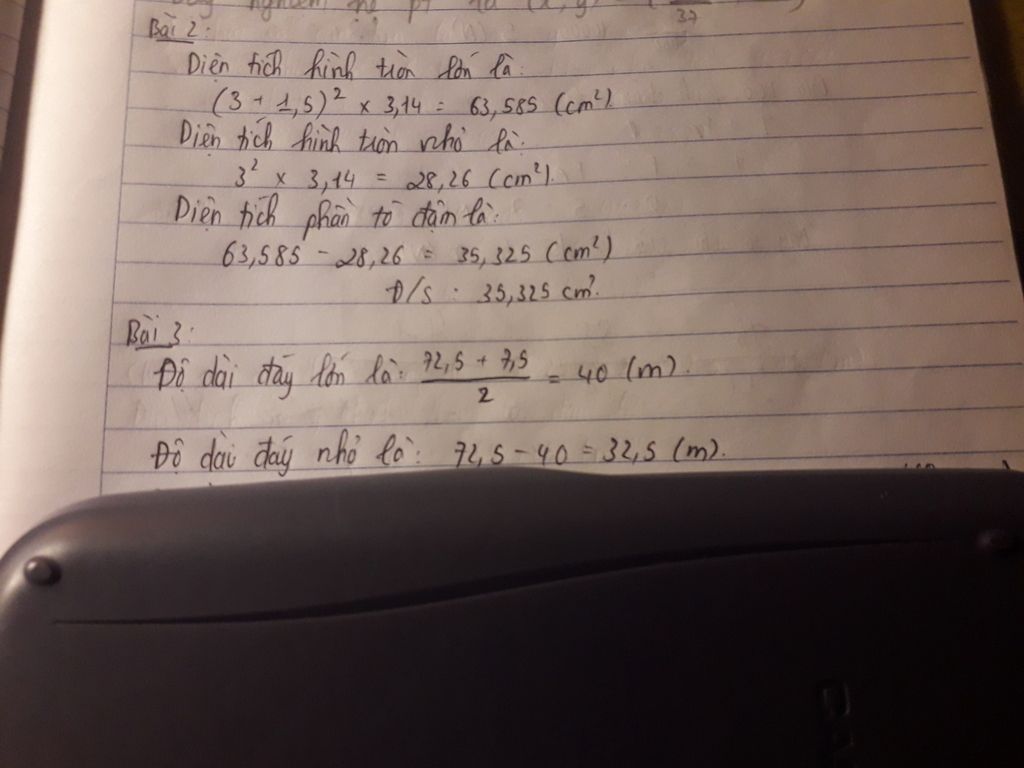 nghiệm hệ pt là (x,y) = (
37
Bài 2:
Diện tích hình tròn lớn là:
(3 + 1,5)² x 3,14 = 63,585 (cm²)
Diện tích hình tròn nhỏ là:
3² x 3,14 = 28,26 (cm²).
Diện tích phần tô đậm là:
63,585 - 28,26 = 35,325 (cm²)
Đ/S : 35,325 cm².
Bài 3:
Độ dài đáy lớn là: (72,5 + 7,5)/2 = 40 (m).
Độ dài đáy nhỏ là: 72,5 - 40 = 32,5 (m).